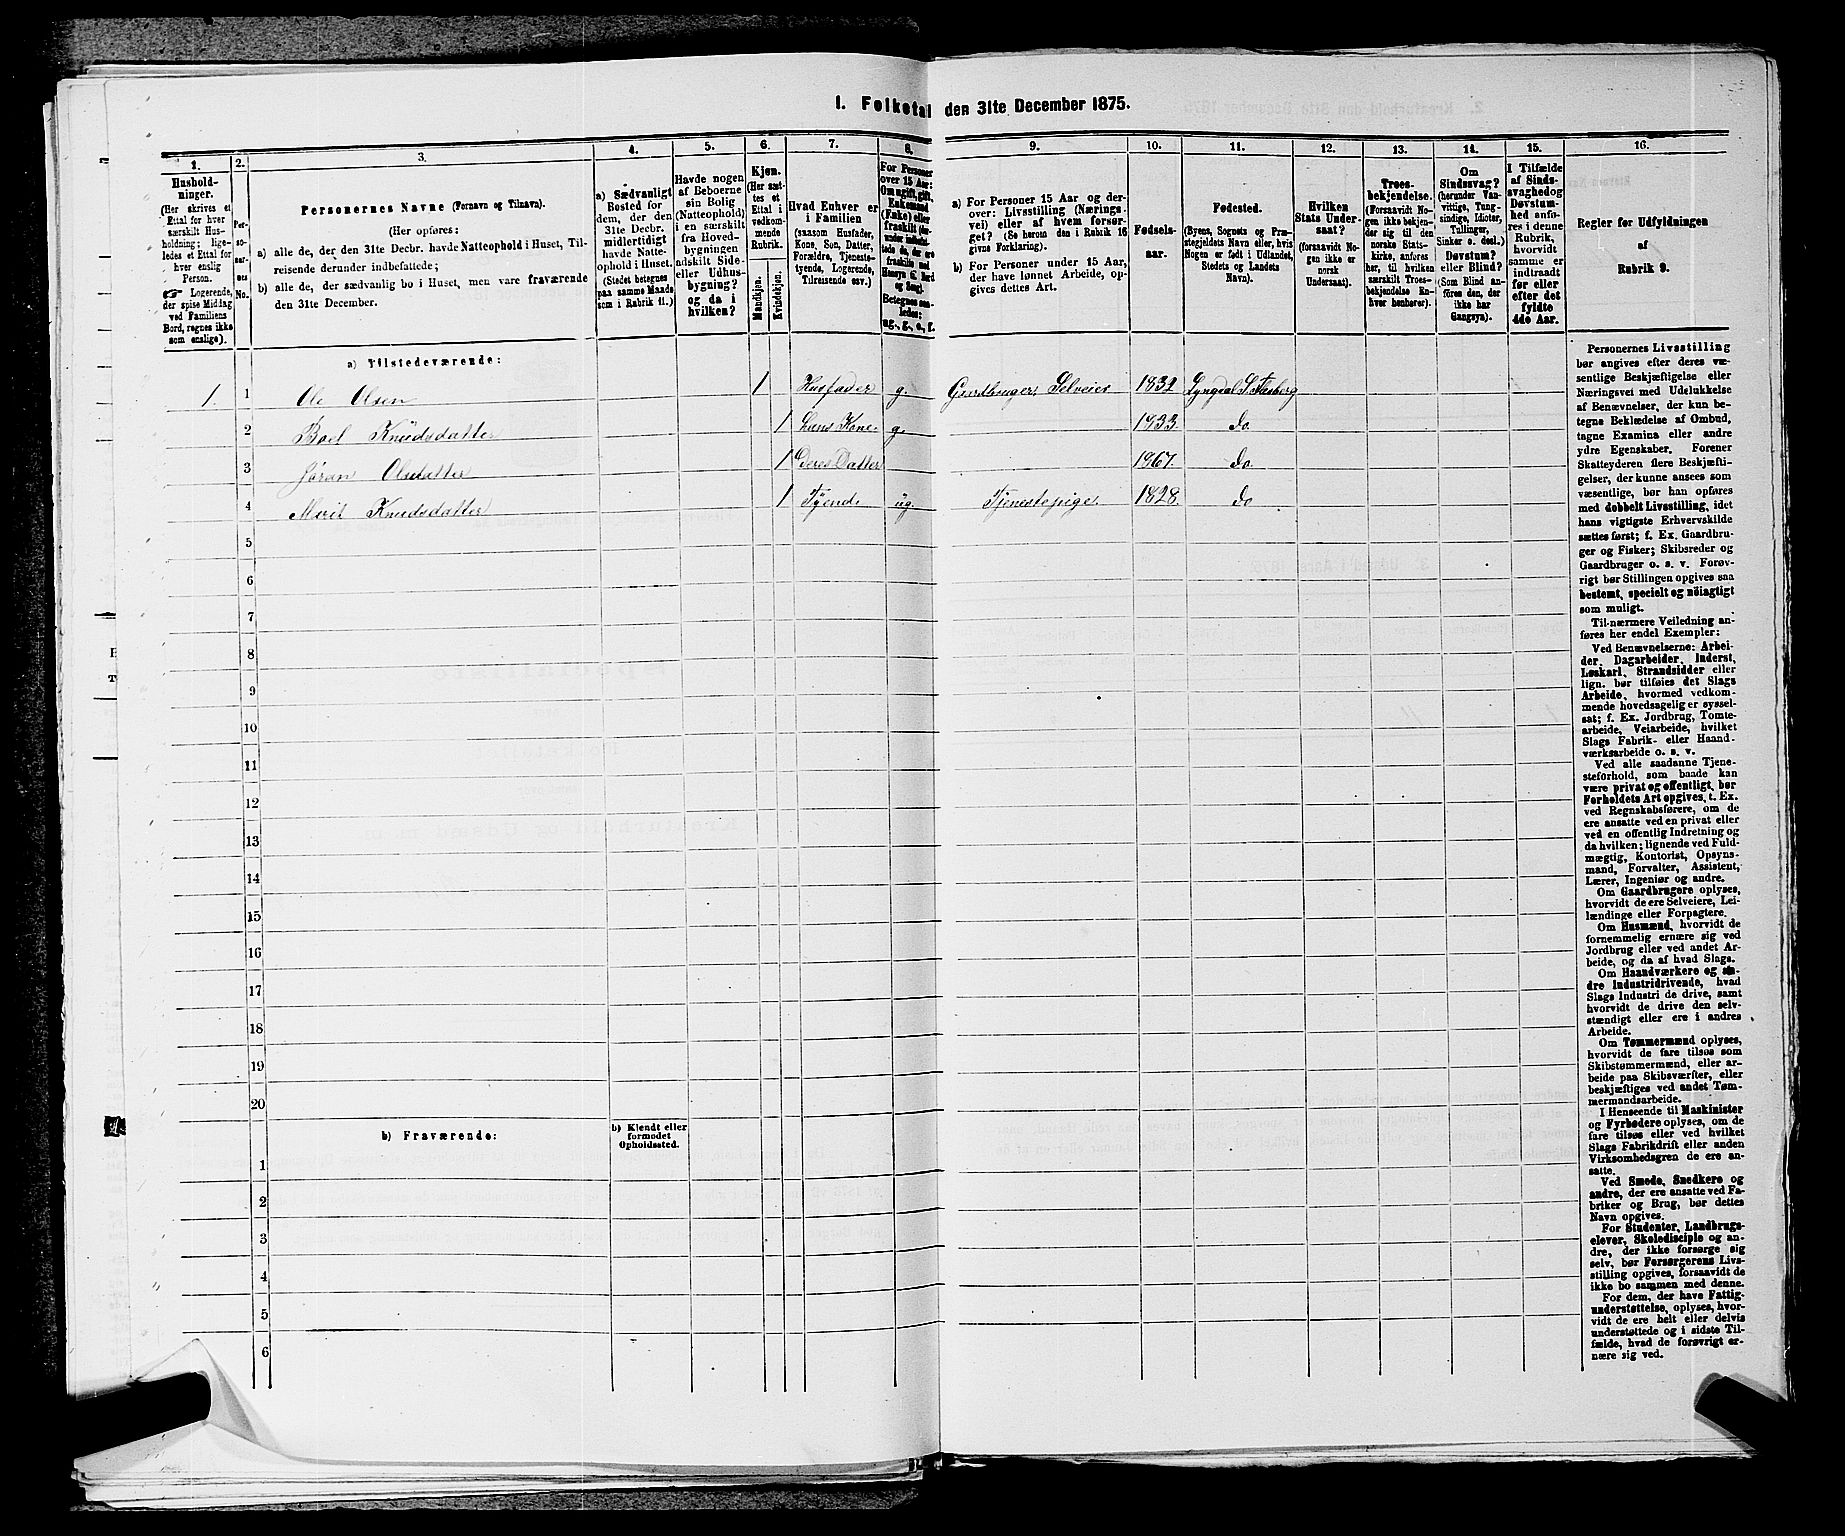 I. Folketal den 31te December 1875.
1. 2. 3. 4. 5. 6. 7. 8. 9. 10. 11. 12. 13. 14. 15. 16.
Hushold-
ninger.
(Her skrives et
Ettal for hver
særskilt Hus-
holdning; lige-
ledes et Ettal for
hver enslig
Person.
☞ Logerende,
der spise Middag
ved Familiens
Bord, regnes ikke
som enslige).
Per-
so-
ner-
nes
No.
Personernes Navne (Fornavn og Tilnavn).
(Her opføres:
a) alle de, der den 31te Decbr. havde Natteophold i Huset, Til-
reisende derunder indbefattede;
b) alle de, der sædvanlig bo i Huset, men vare fraværende
den 31te December.
a) Sædvanligt
Bosted for
dem, der den
31te Decbr.
midlertidigt
havde Natte-
ophold i Huset.
(Stedet betegnes
paa samme Maade
som i Rubrik 11.)
Havde nogen
af Beboerne
sin Bolig
(Natteophold)
i en særskilt
fra Hoved-
bygningen
adskilt Side-
eller Udhus-
bygning?
og da i
hvilken?
Kjøn.
(Her sæt-
tes et
Ettal i
vedkom-
mende
Rubrik.
Mandkjøn.
Kvindekjøn.
Hvad Enhver er
i Familien
(saasom Husfader,
Kone, Søn, Datter,
Forældre, Tjeneste-
tyende, Logerende,
Tilreisende osv.)
For Personer
over 15 Aar:
Om ugift, gift,
Enkemand
(Enke) eller
fraskilt
Betegnes saa-
ledes:
ug., g., e., f.
a) For Personer 15 Aar og der-
over: Livsstilling (Nærings-
vei) eller af hvem forsør-
get? (Se herom den i Rubrik 16
givne Forklaring).
b) For Personer under 15 Aar,
der have lønnet Arbeide, op-
gives dettes Art.
Fødsels-
aar.
Fødested.
(Byens, Sognets og Præ-
stegjeldets Navn eller, hvis
Nogen er født i Udlandet,
Stedets og Landets
Navn).
Hvilken
Stats Under-
saat?
(forsaavidt No-
gen ikke er
norsk
Undersaat).
Troes-
bekjendelse.
(Forsaavidt No-
gen ikke bekjen-
der sig til den
norske Stats-
kirke, anføres
her, til hvilken
særskilt Troes-
bekjendelse En-
hver henhører).
Om
Sindssvag?
(herunder Van-
vittige, Tung-
sindige, Idioter,
Tullinger,
Sinker o. desl.)
Døvstum?
eller Blind?
(Som Blind an-
føres den, der
ikke har
Gangsyn).
I Tilfælde
af Sinds-
svaghed og
Døvstum-
hed anfø-
res i denne
Rubrik,
hvorvidt
samme er
indtraadt
før eller
efter det
fyldte
4de Aar.
Regler for Udfyldningen
af
Rubrik 9.
a) Tilstedeværende:
1. 1 Ole Olsen 1 Husfader g. Gardbruger Selveier 1832 Lyngdal S. Flesberg
2 Boel Knudsdatter 1 hans Kone. g. 1833. do.
3 Jøran Olsdatter 1 Deres Datter 1867. do.
4 Marit Knudsdatter 1 Tyende ug. Tjenestepige. 1828. do
5
6
7
8
9
10
11
12
13
14
15
16
17
18
19
20
b) Fraværende:
b) Kjendt eller
formodet
Opholdssted.
1
2
3
4
5
6
Personernes Livsstilling
bør angives efter deres væ-
sentlige Beskjæftigelse eller
Næringsvei med Udelukkelse
af Benævnelser, der kun be-
tegne Beklædelse af Ombud,
tagne Examina eller andre
ydre Egenskaber. Forener
Skatteyderen flere Beskjæfti-
gelser, der kunne ansees som
væsentlige, bør han opføres
med dobbelt Livsstilling, idet
hans vigtigste Erhvervskilde
sættes først; f. Ex. Gaardbru-
ger og Fisker; Skibsreder og
Gaardbruger o. s. v. Forøv-
rigt bør Stillingen opgives saa
bestemt, specielt og nöiagtigt
som muligt.
Til nærmere Veiledning an-
føres her endel Exempler:
Ved Benævnelserne: Arbei-
der, Dagarbeider, Inderst,
Løskarl, Strandsidder eller
lign. bør tilføies det Slags
Arbeide, hvormed vedkom-
mende hovedsagelig er syssel-
sat; f. Ex. Jordbrug, Tomte-
arbeide, Veiarbeide, hvilket
Slags Fabrik- eller Haand-
værksarbeide o. s. v.
Ved alle saadanne Tjene-
steforhold, som baade kan
være privat og offentligt, bør
Forholdets Art opgives, t. Ex.
ved Regnskabsførere, om de
ere ansatte ved en privat eller
ved en offentlig Indretning og
da hvilken; lignende ved Fuld-
mægtig, Kontorist, Opsyns-
mand, Forvalter, Assistent,
Lærer, Ingeniør og andre.
Om Gaardbrugere oplyses,
hvorvidt de ere Selveiere, Lei-
lændinge eller Forpagtere.
Om Husmænd, hvorvidt de
fornemmelig ernære sig ved
Jordbrug eller ved andet Ar-
beide, og da af hvad Slags.
Om Haandværkere og an-
dre Industridrivende, hvad
Slags Industri de drive, samt
hvorvidt de drive den selv-
stændigt eller ere i andres
Arbeide.
Om Tømmermænd oplyses,
hvorvidt de fare tilsøs som
Skibstømmermænd, eller ar-
beide paa Skibsværfter, eller
beskjæftiges ved andet Tøm-
mermandsarbeide.
I Henseende til Maskinister
og Fyrbødere oplyses, om de
fare tilsøs eller ved hvilket
Slags Fabrikdrift eller anden
Virksomhedsgren de ere an-
satte.
Ved Smede, Snedkere og
andre, der ere ansatte ved Fa-
briker og Brug, bør dettes
Navn opgives.
For Studenter, Landbrugs-
elever, Skoledisciple og an-
dre, der ikke forsørge sig
selv, bør Forsørgerens Livs-
stilling opgives, forsaavidt de
ikke bo sammen med denne.
For dem, der have Fattig-
understøttelse, oplyses, hvor-
vidt de ere helt eller delvis
understøttede og i sidste Til-
fælde, hvad de forøvrigt er-
nære sig ved.